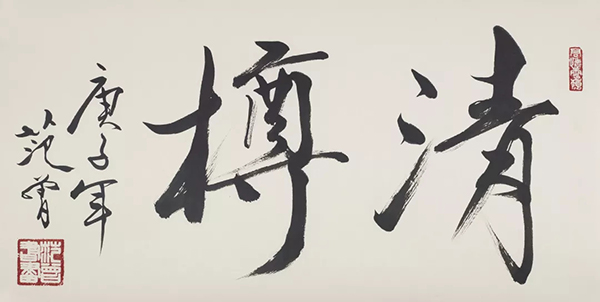 清樽
庚子年
范曾